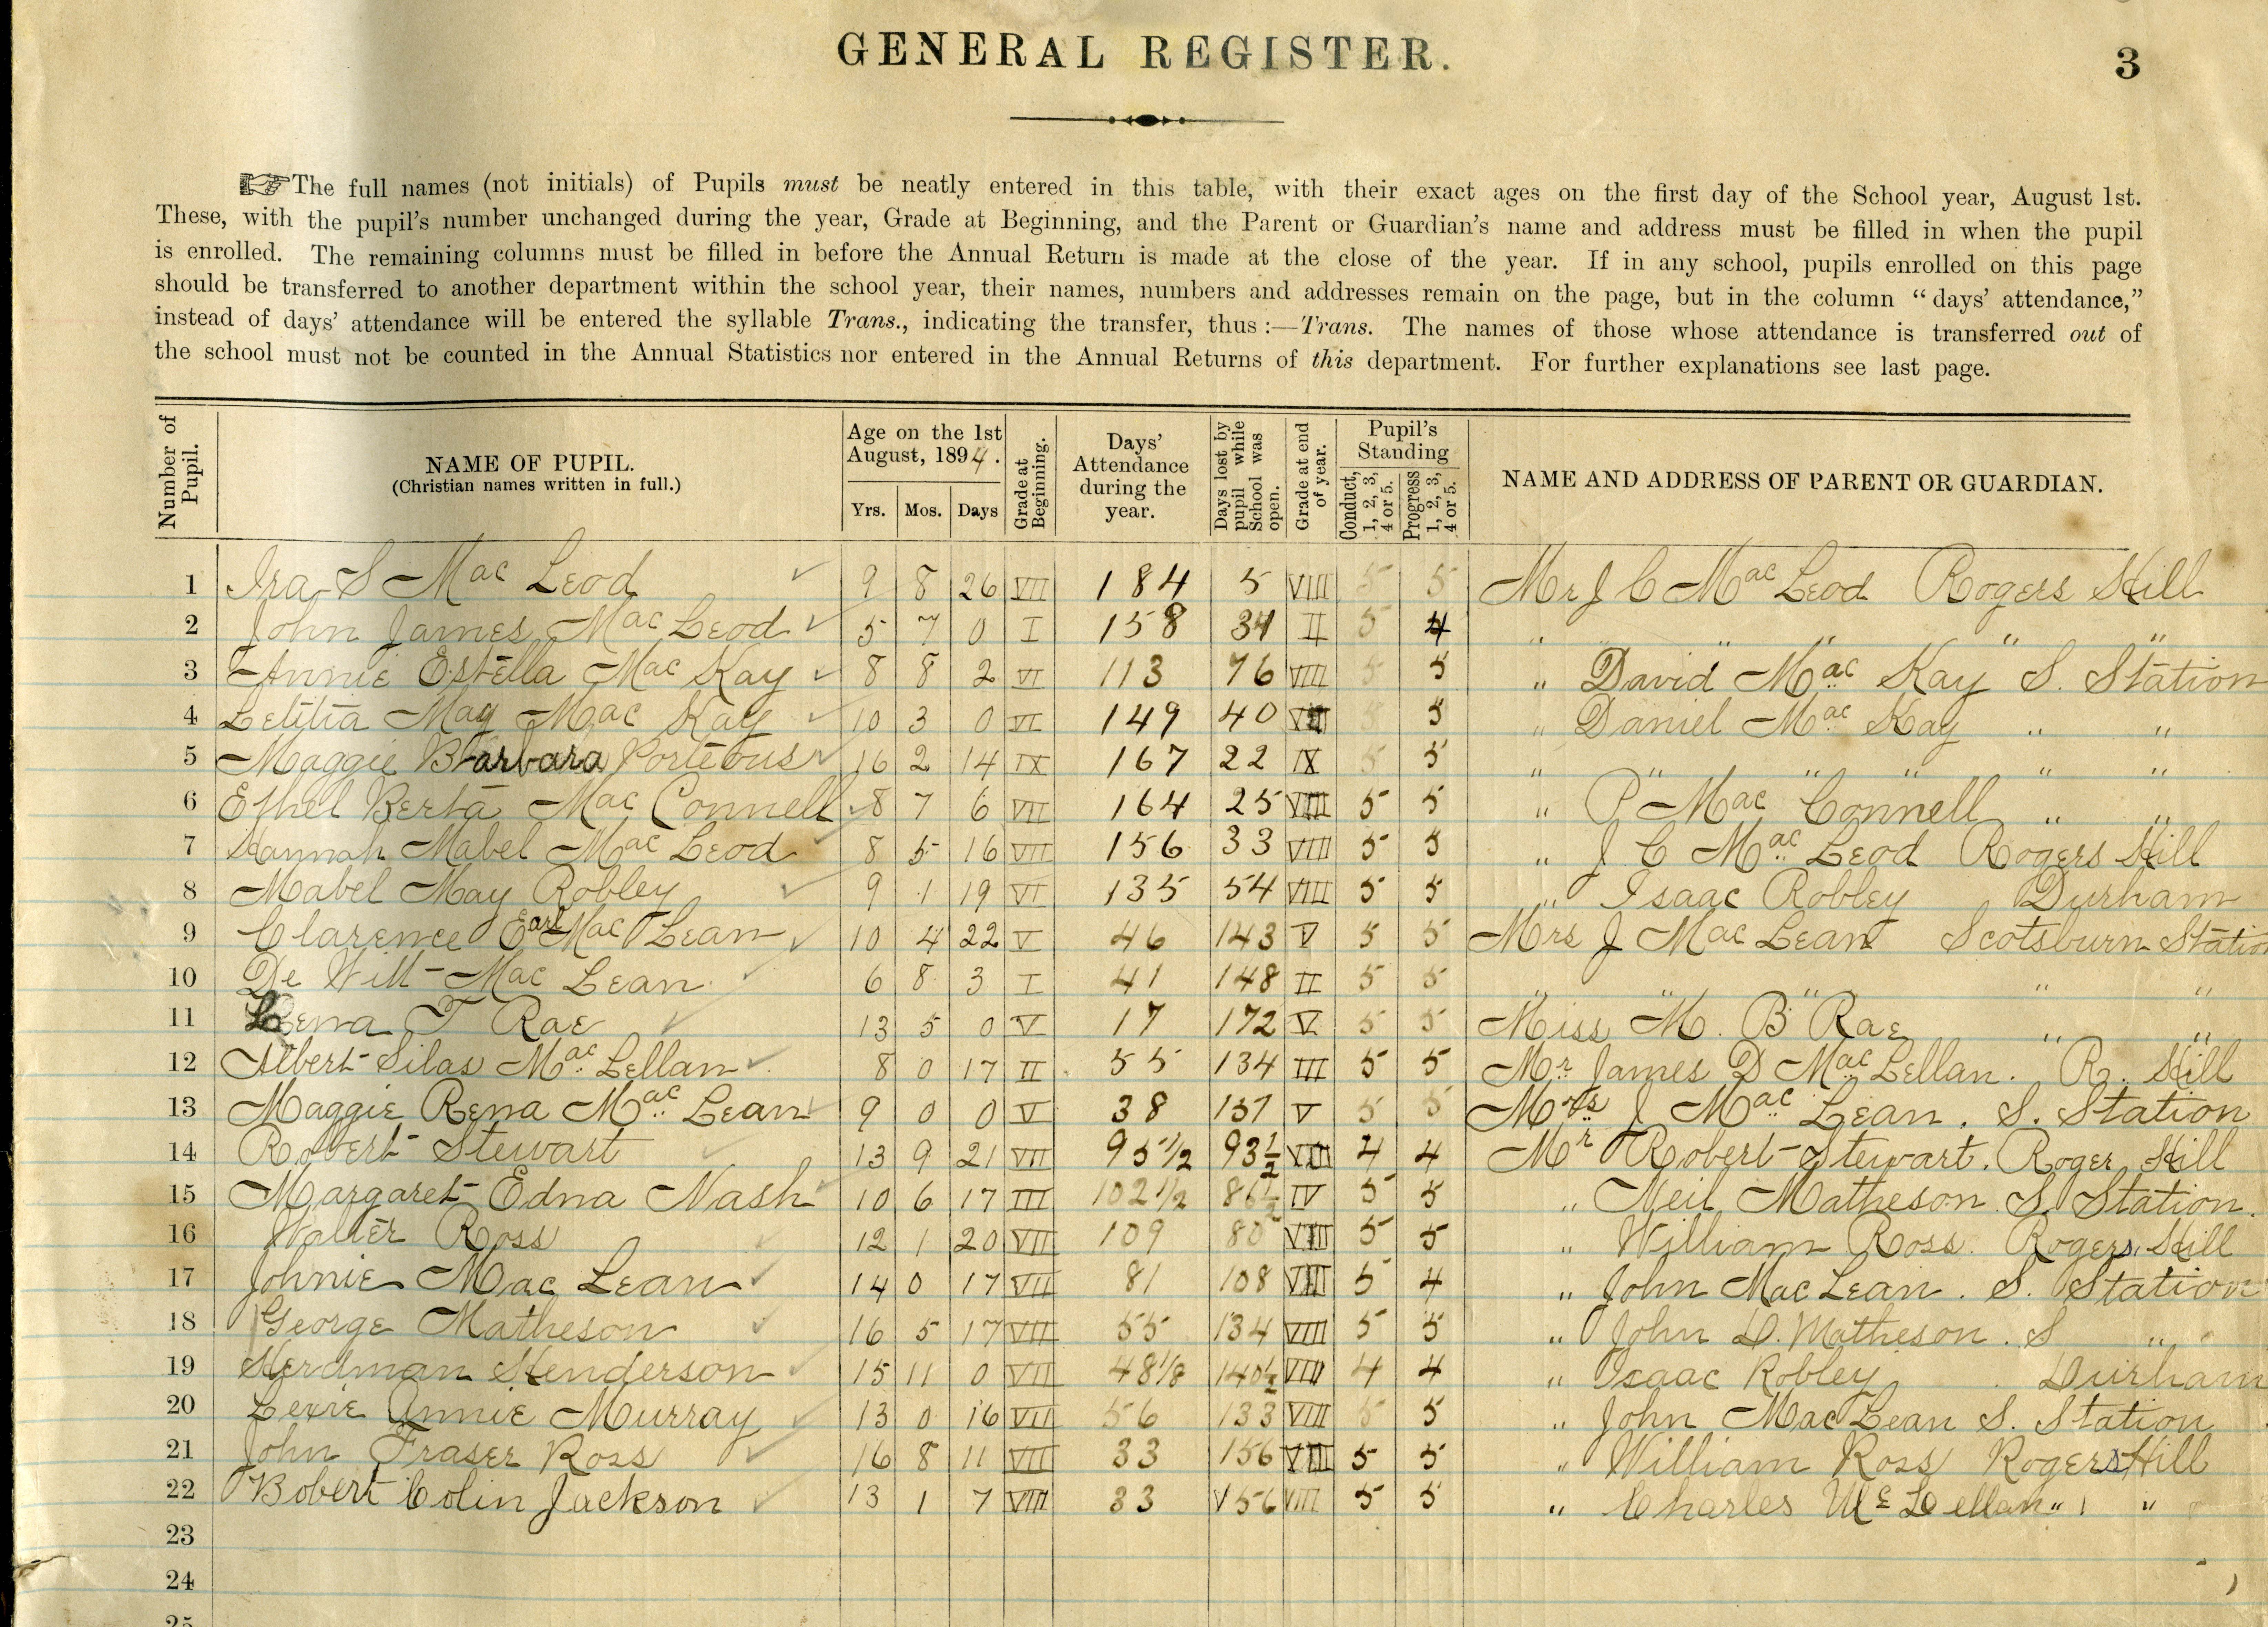 GENERAL REGISTER.
3
☞The full names (not initials) of Pupils must be neatly entered in this table, with their exact ages on the first day of the School year, August 1st.
These, with the pupil's number unchanged during the year, Grade at Beginning, and the Parent or Guardian's name and address must be filled in when the pupil
is enrolled. The remaining columns must be filled in before the Annual Return is made at the close of the year. If in any school, pupils enrolled on this page
should be transferred to another department within the school year, their names, numbers and addresses remain on the page, but in the column "days' attendance,"
instead of days' attendance will be entered the syllable Trans., indicating the transfer, thus :—Trans. The names of those whose attendance is transferred out of
the school must not be counted in the Annual Statistics nor entered in the Annual Returns of this department. For further explanations see last page.
Number of Pupil.
NAME OF PUPIL.
(Christian names written in full.)
Age on the 1st
August, 1894.
Yrs. Mos. Days
Grade at Beginning.
Days'
Attendance
during the
year.
Days lost by pupil while School was open.
Grade at end of year.
Pupil's
Standing
Conduct, 1, 2, 3, 4 or 5.
Progress 1, 2, 3, 4 or 5.
NAME AND ADDRESS OF PARENT OR GUARDIAN.
1 Ira S Mac Leod 9 8 26 VII 184 5 VIII 5 5 Mr J C Mac Leod Rogers Hill
2 John James Mac Leod 5 7 0 I 158 34 II 5 4 " " " " "
3 Annie Estella Mac Kay 8 8 2 VI 113 76 VIII 5 5 " David Mac Kay S. Station
4 Letitia May Mac Kay 10 3 0 VI 149 40 5 5 " Daniel Mac Kay " "
5 Maggie Barbara Porteous 16 2 14 IX 167 22 IX 5 5 " " " " " "
6 Ethel Berta Mac Connell 8 7 6 VII 164 25 VIII 5 5 " P Mac Connell " "
7 Hannah Mabel Mac Leod 8 5 16 VII 156 33 VIII 5 5 " J C Mac Leod Rogers Hill
8 Mabel May Robley 9 1 19 VI 135 54 VIII 5 5 " Isaac Robley Durham
9 Clarence Earl Mac Lean 10 4 22 V 46 143 V 5 5 Mrs J Mac Lean Scotsburn Station
10 De Witt Mac Lean 6 8 3 I 41 148 II 5 5 " " " " "
11 Lena T Rae 13 5 0 V 17 172 V 5 5 Miss M. B Rae " "
12 Albert Silas Mac Lellan 8 0 17 II 55 134 III 5 5 Mr James D Mac Lellan. R. Hill
13 Maggie Rena Mac Lean 9 0 0 V 38 151 V 5 5 Mrs J Mac Lean. S. Station
14 Robert Stewart 13 9 21 VII 95 1/2 93 1/2 VIII 4 4 Mr Robert Stewart. Roger Hill
15 Margaret Edna Nash 10 6 17 III 102 1/2 86 1/2 IV 5 5 " Neil Matheson S. Station.
16 Walter Ross 12 1 20 VII 109 80 VIII 5 5 " William Ross. Rogers Hill
17 Johnie Mac Lean 14 0 17 VII 81 108 VIII 5 4 " John Mac Lean. S. Station
18 George Matheson 16 5 17 VII 55 134 VIII 5 5 " John D. Matheson. S "
19 Herdman Henderson 15 11 0 VII 48 1/8 140 1/2 VIII 4 4 " Isaac Robley Durham
20 Lexie Annie Murray 13 0 16 VII 56 133 VIII 5 5 " John Mac Lean S. Station
21 John Fraser Ross 16 8 11 VII 33 156 VIII 5 5 " William Ross Rogers Hill
22 Robert Colin Jackson 13 1 7 VIII 33 156 VIII 5 5 " Charles McLellan " "
23
24
25